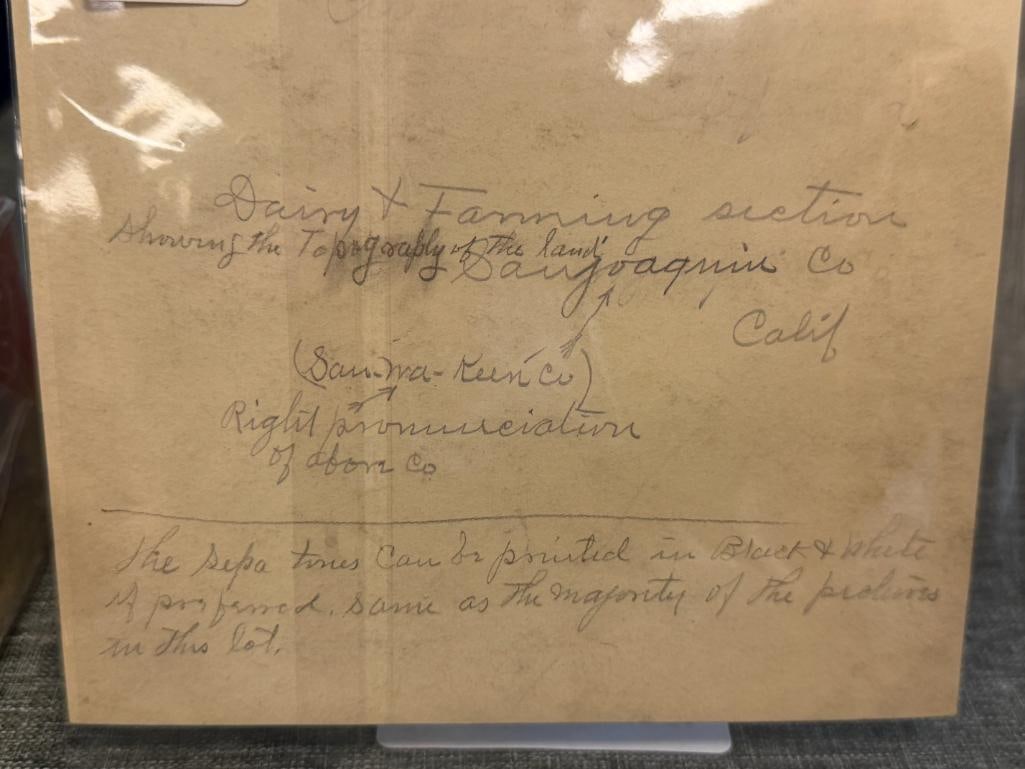 Dairy & Farming section
Showing the Topography of the land
San Joaquin Co
Calif
(San-wa-Keen Co)
Right pronunciation
of above Co
The Sepa tones Can be printed in Black & White
if preferred. Same as the majority of the pictures
in this lot.